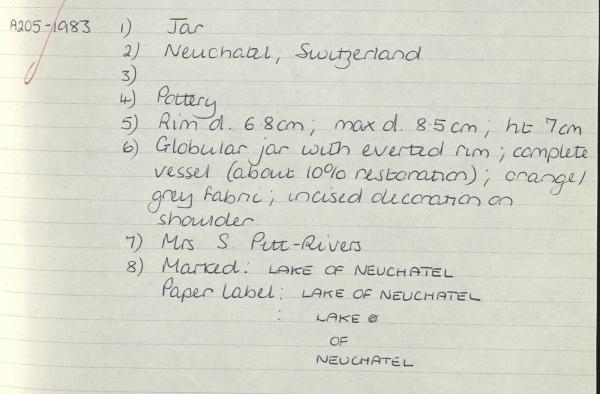 A205-1983 1) Jar
2) Neuchatel, Switzerland
3)
4) Pottery
5) Rim d. 6.8cm; max d. 8.5cm; ht 7cm
6) Globular jar with everted rim; complete
vessel (about 10% restoration); orange/
grey fabric; incised decoration on
shoulder
7) Mrs S Pitt-Rivers
8) Marked: LAKE OF NEUCHATEL
Paper label: LAKE OF NEUCHATEL
: LAKE
OF
NEUCHATEL